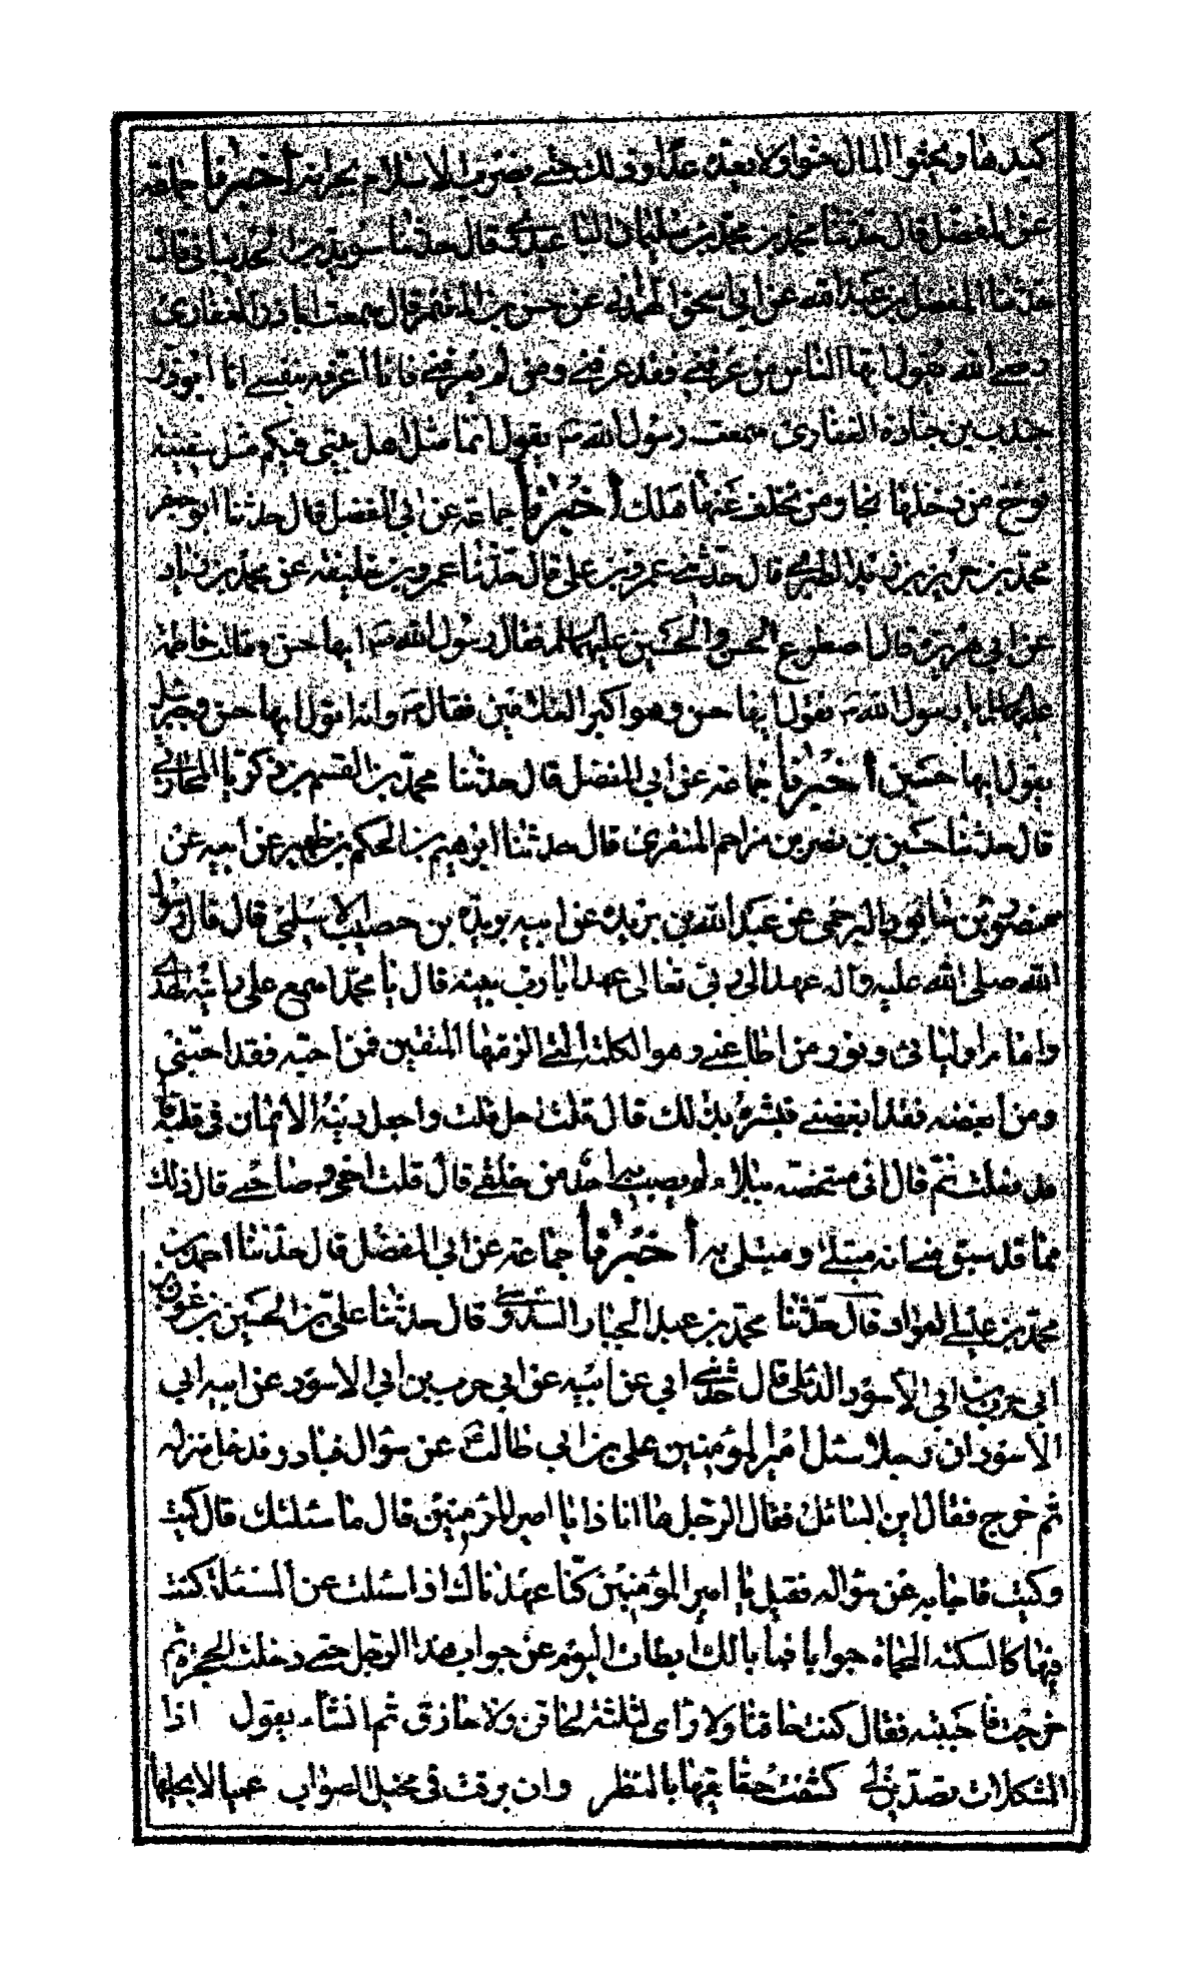 كبدها ويحثوا المال حثوا ولا يعده عدا وذلك حتى يضرب الاسلام بجرانه أخبرنا جماعة
عن أبي المفضل قال حدثنا محمد بن محمد بن سليمان الباغندي قال حدثنا سويد بن قال
حدثنا المفضل بن عبد الله عن ابي اسحق الهمداني عن حنش بن المعتمر قال سمعت اباذر الغفاري
رضي الله يقول ايها الناس من عرفني فقد عرفني ومن لم يعرفني فانا اعرفه بنفسي انا ابوذر
جندب بن جنادة الغفاري سمعت رسول الله ص يقول انما مثل اهل بيتي فيكم مثل سفينة
نوح من دخلها نجا ومن تخلف عنها هلك أخبرنا جماعة عن ابي المفضل قال حدثنا ابو جعفر
محمد بن جرير بن يزيد الطبري قال حدثني عمرو بن علي قال حدثنا عمرو بن خليفة عن محمد بن زياد
عن ابي هريرة قال اصطرع الحسن والحسين عليهما لم فقال رسول الله ص ايها حسن فقالت فاطمة
عليها يا رسول الله ص تقول ايها حسن وهو اكبر الغلامين فقال ص وانه اقول ايها حسن وجبرئيل
يقول ايها حسين أخبرنا جماعة عن ابي المفضل قال حدثنا محمد بن القسم بن زكريا المحاربي
قال حدثنا حسين بن نصر بن مزاحم المنقري قال حدثنا ابرهيم بن الحكم بن ظهير عن ابيه عن
منصور بن سابور البرجمي عن عبد الله بن بريدة عن ابيه بريدة بن حصيب الاسلمي قال قال رسول
الله صلى الله عليه واله عهد الي ربي تعالى عهدا يا رب بينه قال يا محمد اسمع علي راية الهدى
وامام اوليائي ونور من اطاعني وهو الكلمة التي الزمتها المتقين فمن احبه فقد احبني
ومن ابغضه فقد ابغضني فبشره بذلك قال قلت اجل قلت واجعل دينه الايمان في قلبه قال
قد فعلت ثم قال اني مستخصه ببلاء لم يصب احد من خلقي قال قلت اخي وصاحبي قال ذلك
مما قد سبق مني انه مبتلى ومبتلى به أخبرنا جماعة عن ابي المفضل قال حدثنا احمد بن
محمد بن عيسى العراد قال حدثنا محمد بن عبد الجبار السدوسي قال حدثنا علي بن الحسين بن عون بن
ابي حرب بن ابي الاسود الدئلي قال حدثني ابي عن ابيه عن ابي حرب بن ابي الاسود عن ابيه ابي
الاسود ان رجلا سئل امير المؤمنين علي بن ابي طالب عن سؤال فبادر فدخل منزله
ثم خرج فقال اين السائل فقال الرجل ها انا ذا يا امير المؤمنين قال ما مسئلتك قال كيت
وكيت فاجابه عن سؤاله فقيل يا امير المؤمنين كنا عهدناك اذا سئلت عن المسئلة كنت
فيها كالسكة المحماة جوابا فما بالك ابطات اليوم عن جواب هذا الرجل حتى دخلت الحجرة ثم
خرجت فاجبته فقال كنت حاقنا ولا راى لثلثة لحاقن ولا حازق ثم انشاء يقول اذا
المشكلات تصدين لي كشفت حقائقها بالنظر وان برقت في مخيل الصواب عمياء لا يجليها